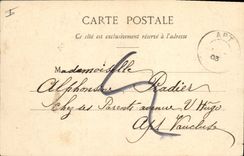 I
CARTE POSTALE
Ce côté est exclusivement réservé à l'adresse
APT
03
Mademoiselle
Alphonsine Radier
Chez ses Parents avenue V Hugo
Apt Vaucluse